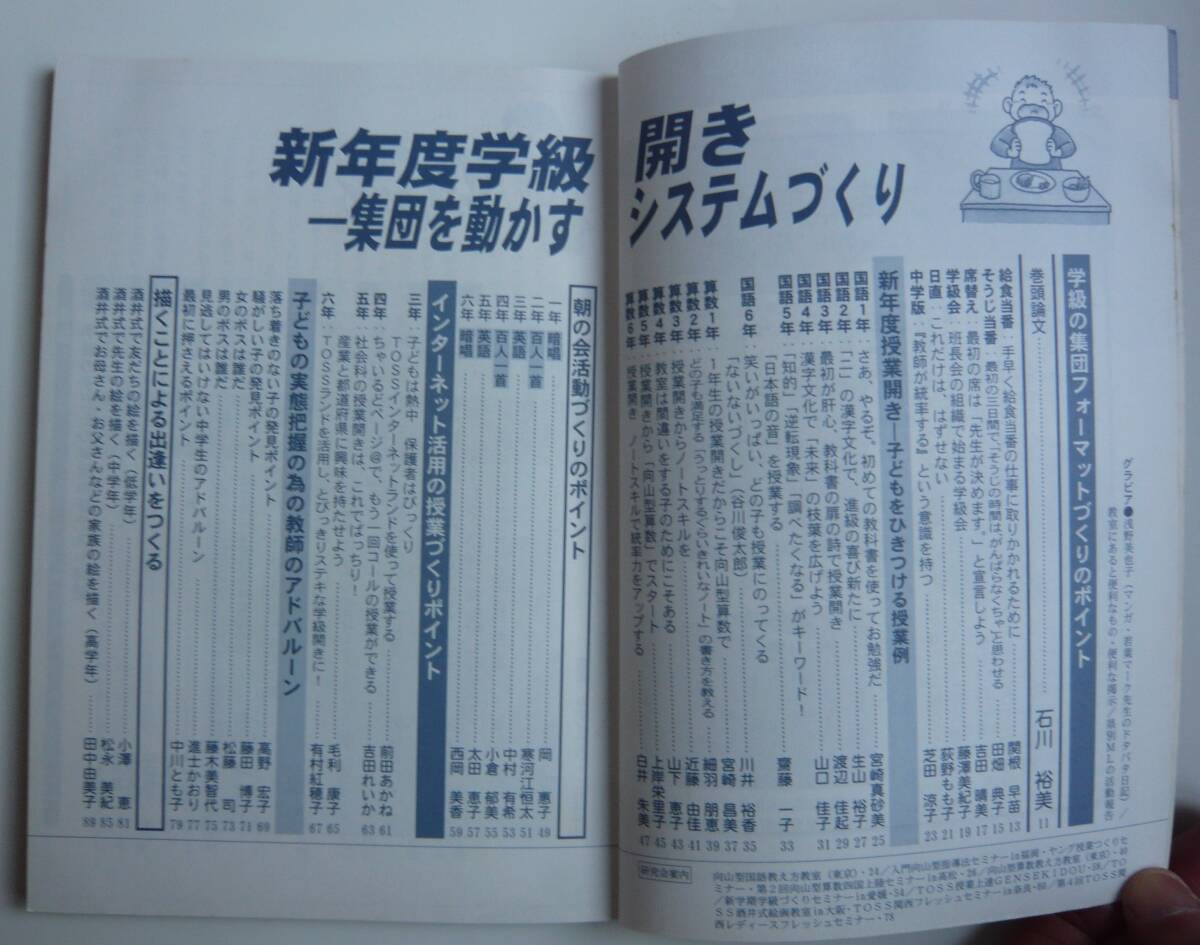 新年度学級開き
―集団を動かすシステムづくり
グラビア●浅野美也子(マンガ・若葉マーク先生のドタバタ日記)/
教室にあると便利なもの・便利な掲示/県別MLの活動報告
学級の集団フォーマットづくりのポイント
巻頭論文……石川 裕美 11
給食当番 手早く給食当番の仕事に取りかかれるために……関根 早苗 13
そうじ当番 最初の三日間で、そうじの時間はがんばらなくちゃと思わせる……田畑 典子 15
席替え 最初の席は「先生が決めます。」と宣言しよう……吉田 晴美 17
学級会 班長会の組織で始まる学級会……藤澤美紀子 19
日直 これだけは、はずせない……荻野もも子 21
中学版 『教師が統率する』という意識を持つ……芝田 涼子 23
新年度授業開き―子どもをひきつける授業例
国語1年 さあ、やるぞ。初めての教科書を使ってお勉強だ……宮崎真砂美 25
国語2年 「二」の漢字文化で、進級の喜び新たに……生山 裕子 27
国語3年 最初が肝心、教科書の扉の詩で授業開き……渡辺 佳起 29
国語4年 漢字文化で「未来」の枝葉を広げよう……山口 佳子 31
国語5年 「知的」「逆転現象」「調べたくなる」がキーワード!
「日本語の音」を授業する……齋藤 一子 33
国語6年 笑いがいっぱい、どの子も授業にのってくる
「ないないづくし」(谷川俊太郎)……川井 裕香 35
算数1年 1年生の授業開きだからこそ向山型算数で……宮崎 昌美 37
算数2年 どの子も満足する「うっとりするくらいきれいなノート」の書き方を教える……細羽 朋恵 39
算数3年 授業開きからノートスキルを……近藤 由佳 41
算数4年 教室は間違いをする子のためにこそある……山下 恵子 43
算数5年 授業開きから「向山型算数」でスタート……上岸栄里子 45
算数6年 授業開き ノートスキルで統率力をアップする……白井 朱美 47
朝の会活動づくりのポイント
一年 暗唱……岡 惠子 49
二年 百人一首……寒河江恒太 51
三年 英語……中村 有希 53
四年 百人一首……小倉 郁美 55
五年 英語……太田 恵子 57
六年 暗唱……西岡 美香 59
インターネット活用の授業づくりポイント
三年 子どもは熱中 保護者はびっくり
TOSSインターネットランドを使って授業する……前田あかね 61
四年 ちゃいるどページ@で、もう一回コールの授業ができる……吉田れいか 63
五年 社会科の授業開きは、これでばっちり!
産業と都道府県に興味を持たせよう……毛利 康子 65
六年 TOSSランドを活用し、とびっきりステキな学級開きに!……有村紅穂子 67
子どもの実態把握の為の教師のアドバルーン
落ち着きのない子の発見ポイント……高野 宏子 69
騒がしい子の発見ポイント……藤田 博子 71
女のボスは誰だ……松藤 司 73
男のボスは誰だ……藤木美智代 75
見逃してはいけない中学生のアドバルーン……進士かおり 77
最初に押さえるポイント……中川とも子 79
描くことによる出逢いをつくる
酒井式で友だちの絵を描く(低学年)……小澤 恵 81
酒井式で先生の絵を描く(中学年)……松永 美紀 85
酒井式でお母さん・お父さんなどの家族の絵を描く(高学年)……田中由美子 89
研究会案内
向山型国語教え方教室(東京)・24/入門向山型指導法セミナーin福岡・ヤング授業つくりセ
ミナー・第2回向山型算数四国上陸セミナーin高松・26/向山型算数教え方教室(東京)・40
/新学期学級づくりセミナーin愛媛・54/TOSS授業上達GENSEKIDOU・58/TO
SS酒井式絵画教室in大阪・TOSS関西フレッシュセミナーin奈良・80/第4回TOSS関
西レディースフレッシュセミナー・78